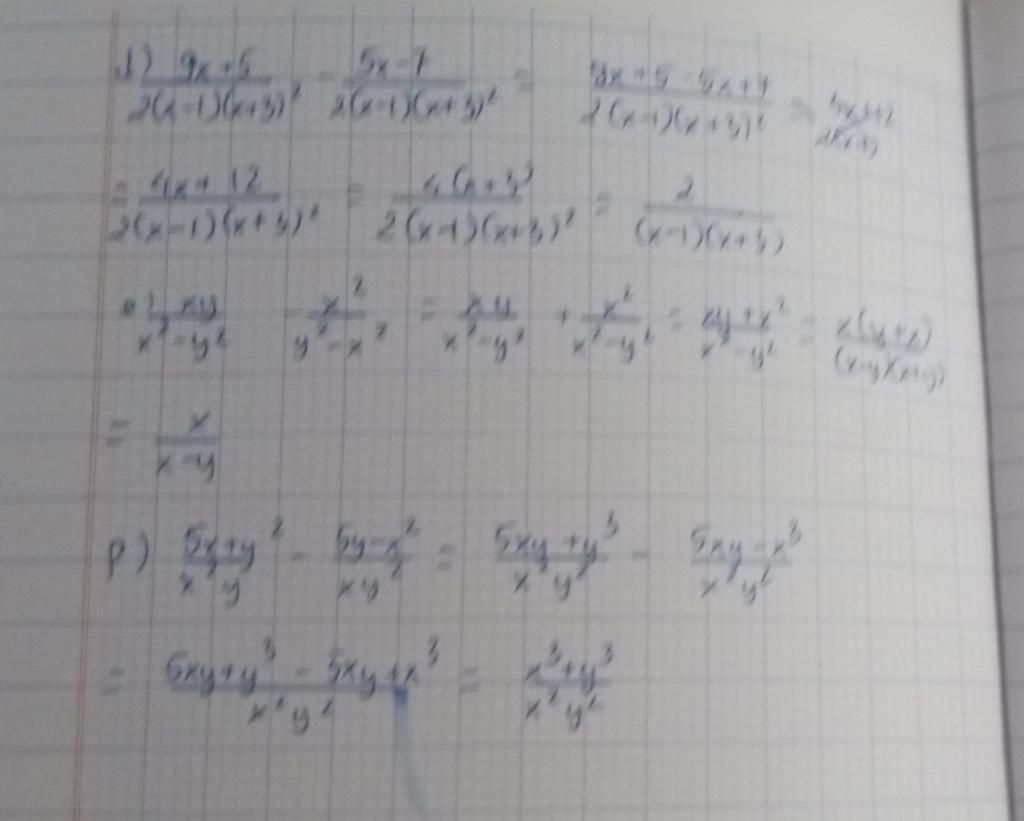 d) \frac{9x+5}{2(x-1)(x+3)^2} - \frac{5x-7}{2(x-1)(x+3)^2} = \frac{9x+5-5x+7}{2(x-1)(x+3)^2} =
= \frac{4x+12}{2(x-1)(x+3)^2} = \frac{4(x+3)}{2(x-1)(x+3)^2} = \frac{2}{(x-1)(x+3)}
e) \frac{xy}{x^2-y^2} - \frac{x^2}{y^2-x^2} = \frac{xy}{x^2-y^2} + \frac{x^2}{x^2-y^2} = \frac{xy+x^2}{x^2-y^2} = \frac{x(y+x)}{(x-y)(x+y)}
= \frac{x}{x-y}
p) \frac{5x+y^2}{x^2y} - \frac{5y-x^2}{xy^2} = \frac{5xy+y^3}{x^2y^2} - \frac{5xy-x^3}{x^2y^2}
= \frac{5xy+y^3-5xy+x^3}{x^2y^2} = \frac{x^3+y^3}{x^2y^2}